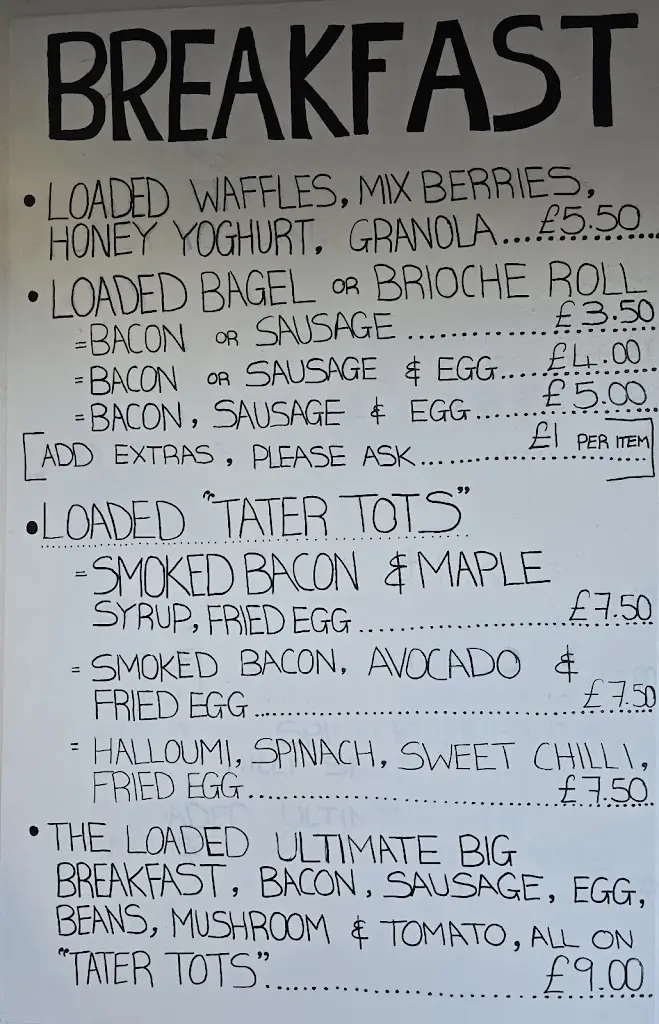 BREAKFAST
• LOADED WAFFLES, MIX BERRIES,
HONEY YOGHURT, GRANOLA... £5.50
• LOADED BAGEL OR BRIOCHE ROLL
=BACON OR SAUSAGE .............. £3.50
=BACON OR SAUSAGE & EGG.... £4.00
=BACON, SAUSAGE & EGG...... £5.00
[ADD EXTRAS, PLEASE ASK.............. £1 PER ITEM]
• LOADED "TATER TOTS"
=SMOKED BACON & MAPLE
SYRUP, FRIED EGG .................. £7.50
=SMOKED BACON, AVOCADO &
FRIED EGG.............................. £7.50
=HALLOUMI, SPINACH, SWEET CHILLI,
FRIED EGG.............................. £7.50
• THE LOADED ULTIMATE BIG
BREAKFAST, BACON, SAUSAGE, EGG,
BEANS, MUSHROOM & TOMATO, ALL ON
"TATER TOTS"........................... £9.00